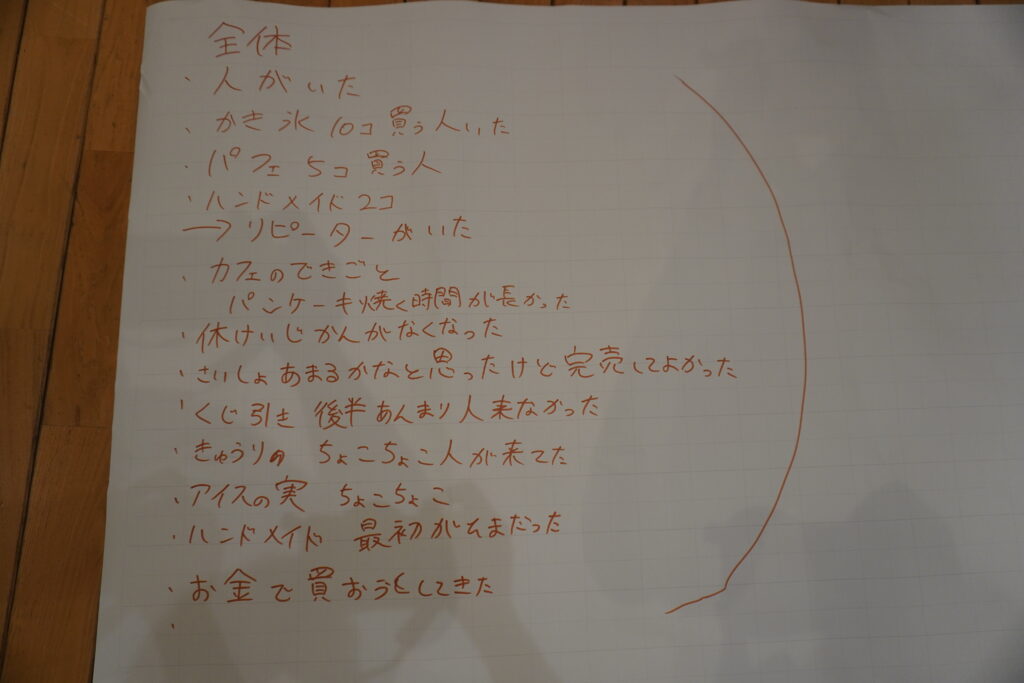 全体
・人がいた
・かき氷 10コ買う人いた
・パフェ 5コ買う人
・ハンドメイド 2コ
→リピーターがいた
・カフェのできごと
パンケーキ焼く時間が長かった
・休けいじかんがなくなった
・さいしょあまるかなと思ったけど完売してよかった
・くじ引き 後半あんまり人来なかった
・きゅうりの ちょこちょこ人が来てた
・アイスの実 ちょこちょこ
・ハンドメイド 最初がんまだった
・お金で買おうとしてきた
・